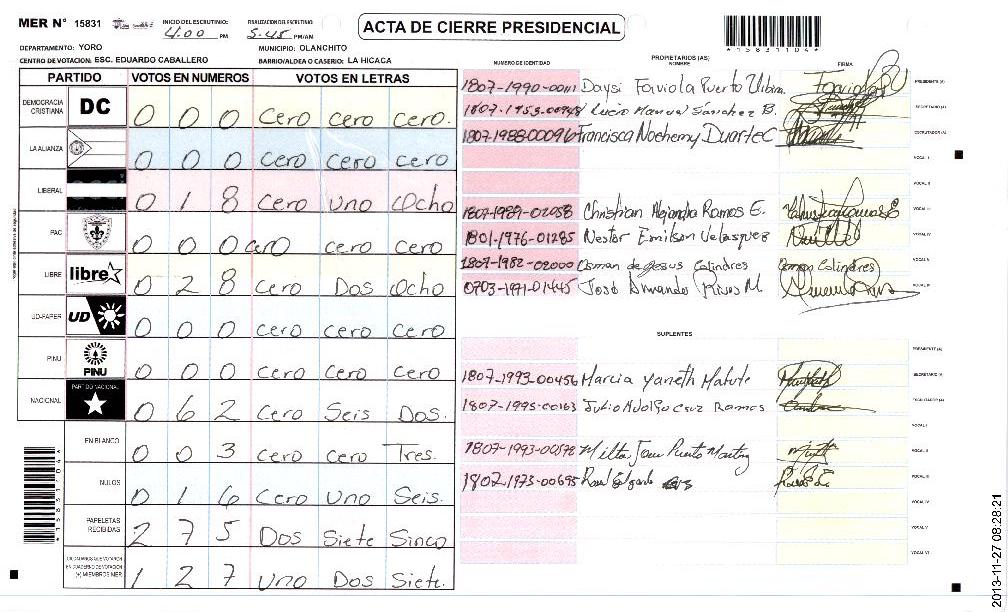 MER N° 15831
INICIO DEL ESCRUTINIO 4:00 PM
FINALIZACION DEL ESCRUTINIO 5:45 PM/AM
ACTA DE CIERRE PRESIDENCIAL
*1583110 4*
DEPARTAMENTO: YORO
MUNICIPIO: OLANCHITO
CENTRO DE VOTACION: ESC. EDUARDO CABALLERO
BARRIO/ALDEA O CASERIO: LA HICACA
PARTIDO VOTOS EN NUMEROS VOTOS EN LETRAS
DEMOCRACIA CRISTIANA DC 0 0 0 Cero cero cero.
LA ALIANZA 0 0 0 Cero Cero cero
LIBERAL 0 1 8 Cero Uno Ocho
PAC 0 0 0 cero cero cero
LIBRE libre 0 2 8 Cero Dos Ocho
UD-FAPER UD 0 0 0 cero cero cero
PINU PINU 0 0 0 Cero Cero Cero
NACIONAL PARTIDO NACIONAL 0 6 2 Cero Seis Dos.
EN BLANCO 0 0 3 cero cero Tres.
NULOS 0 1 6 Cero Uno Seis.
PAPELETAS RECIBIDAS 2 7 5 Dos Siete Sinco
CIUDADANOS QUE VOTARON EN CUADERNO DE VOTACION (+) MIEMBROS MER 1 2 7 Uno Dos Siete.
NUMERO DE IDENTIDAD
PROPIETARIOS (AS)
NOMBRE
FIRMA
1807-1990-00111 Daysi Faviola Puerto Urbina PRESIDENTE (A)
1807-1953-00948 Lucio Manuel Sánchez B. SECRETARIO (A)
1807-1988-00096 Francisca Nohemy Duarte C ESCRUTADOR (A)
VOCAL I
VOCAL II
1807-1989-02058 Christian Alejandra Ramos E. VOCAL III
1801-1976-01285 Nestor Emilson Velasquez VOCAL IV
1807-1982-02000 Osman de Jesus Colindres Osman Colindres VOCAL V
0703-1971-01445 Jose Armando Rivas M. VOCAL VI
SUPLENTES
PRESIDENTE (A)
1807-1993-00456 Marcia Yaneth Matute SECRETARIO (A)
1807-1995-00163 Julio Adolfo Cruz Ramos ESCRUTADOR (A)
VOCAL I
1807-1993-00578 VOCAL II
1802-1973-00695 Raul Edgardo VOCAL III
VOCAL IV
VOCAL V
VOCAL VI
2013-11-27 08:28:21